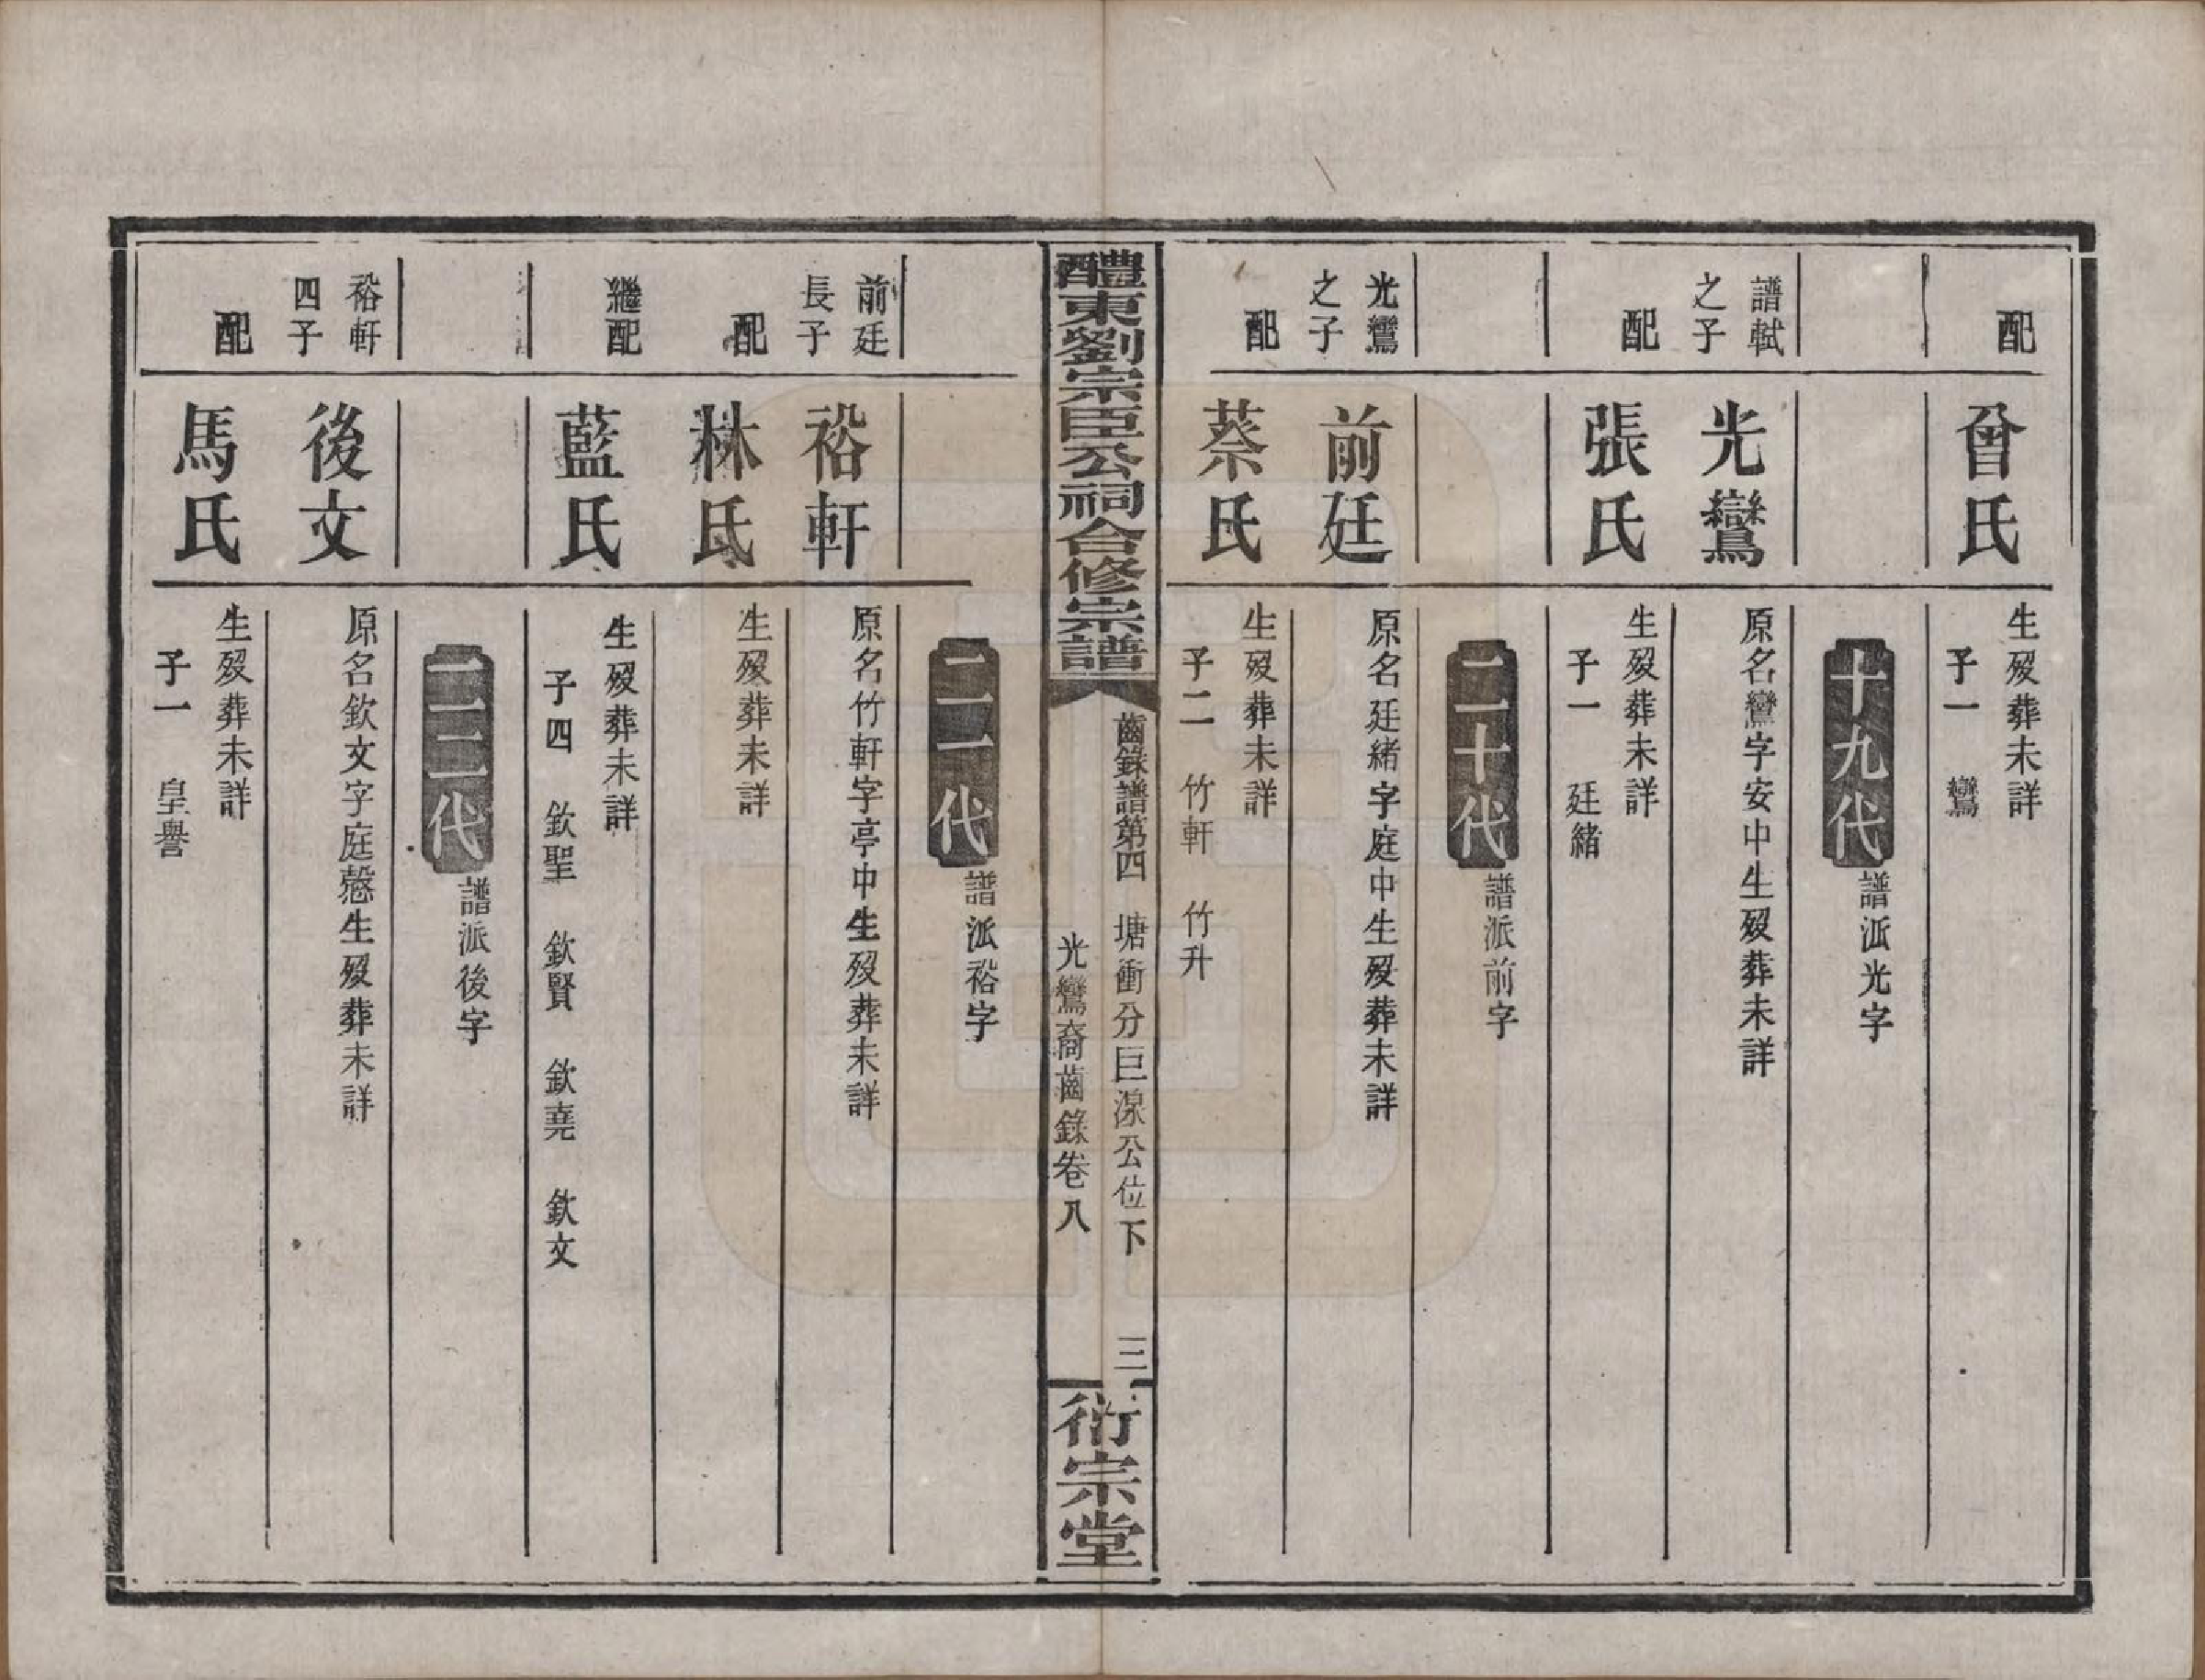 配
曾氏
生歿葬未詳
子一　鸞
十九代
譜派光字
譜軾
之子
光鸞
原名鸞字安中生歿葬未詳
配
張氏
生歿葬未詳
子一　廷緒
二十代
譜派前字
光鸞
之子
前廷
原名廷緒字庭中生歿葬未詳
配
蔡氏
生歿葬未詳
子二　竹軒　竹升
醴東劉宗臣公祠合修宗譜
齒錄譜第四　塘衝分巨湶公位下
光鸞裔齒錄卷八
三
衍宗堂
二一代
譜派裕字
前廷
長子
裕軒
原名竹軒字亭中生歿葬未詳
配
林氏
生歿葬未詳
繼配
藍氏
生歿葬未詳
子四　欽聖　欽賢　欽堯　欽文
二二代
譜派後字
裕軒
四子
後文
原名欽文字庭慤生歿葬未詳
配
馬氏
生歿葬未詳
子一　皇譽